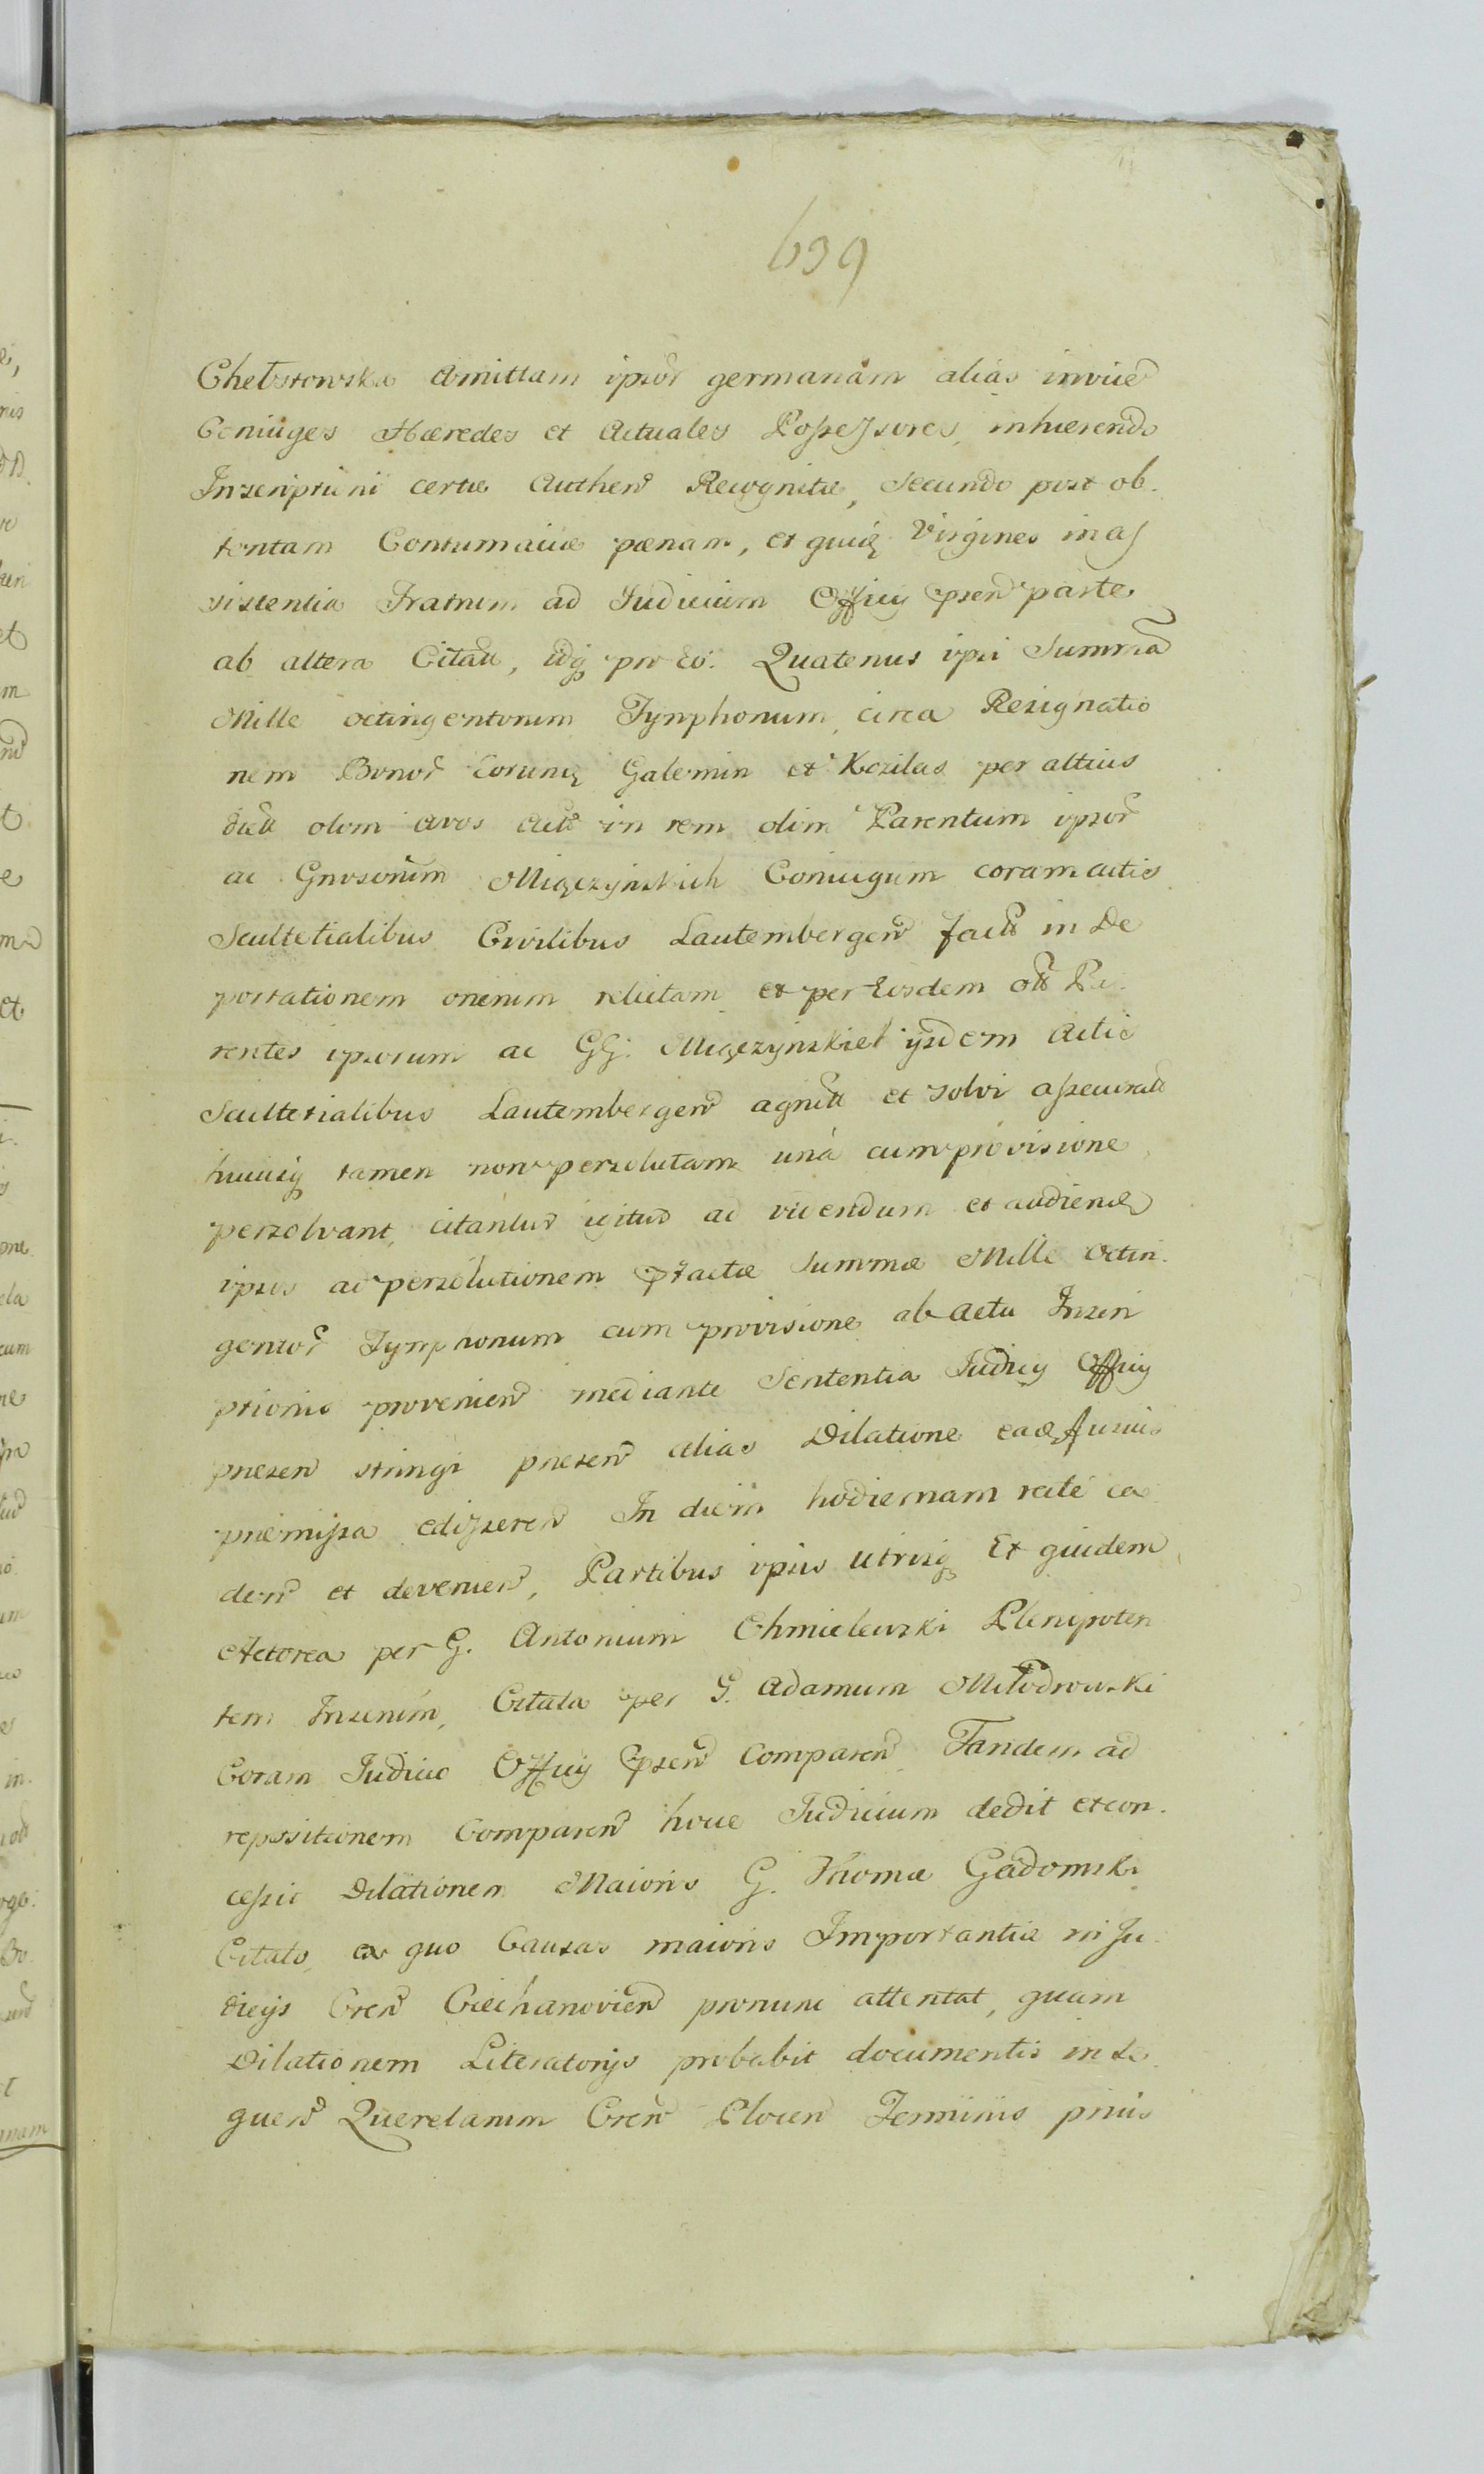 639
Chełstowska Amittam ipsor germanam alias invice
Coniuges Hæredes et Actuales Possessores, inhærendo
Inscriptioni certæ Authen Recognitæ, Secundo post ob
tentam Contumaciæ pænam, et quidē Virgines in as
sistentia Fratrum ad Iudicium Officij præsen parte
ab altera Citatt, idq pro eo. Quatenus ipsi Summā
Mille octingentorum Tynphonum, circa Resignatio
nem Bonor eorumq Galemin et Kozilas per altius
dictt olim avos Actt in rem olim Parentum ipsor
ac Gnosorum Miączyńskich Coniugum coram actis
Scultetialibus Civilibus Lautembergen factt in De
portationem onerum relictam et per Eosdem ott Pa
rentes ipsorum ac GG. Miączyńskie ijsdem Actis
Scultetialibus Lautembergen agnitt et solvi assecuratt
hucusq tamen non persolutam unà cum provisione
persolvant, citantur igitur ad videndum et audiend
ipsos ad persolutionem præfactæ Summæ Mille Octin
gentor Tynphonum cum provisione ab actu Inscri
ptionis provenien mediante Sententia Iudicij Officij
præsen stringi præsen alias Dilatione eadē fusius
præmissa edisseren In diem hodiernam rité ca
den et devenien, Partibus ipsis utrisq Et quidem
Actorea per G. Antonium Chmielewski Plenipoten
tem Citata per G. Adamum Młodrowski
Coram Iudicio Officij præsen Comparen Tandem ad
repositionem Comparen hocce Iudicium dedit et con
cessit Dilationem Maioris G. Thomæ Gadomski
Citato, ex quo Causas maioris Importantiæ in Iu
dicijs Cren Ciechanovien pronunc attentat, quam
Dilationem Literatorijs probabit documentis in se
quen Querelarum Cren Plocen Terminis prius